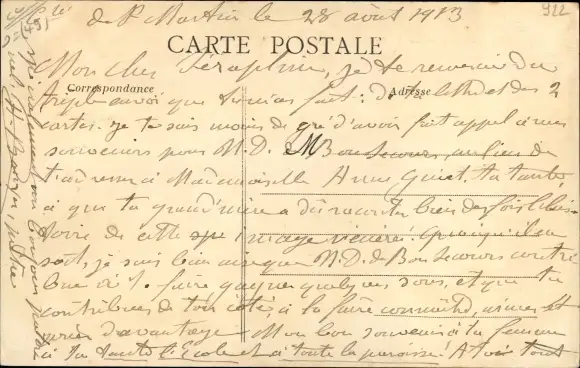 de St Martin le 28 août 1913
922
CARTE POSTALE
Correspondance
Adresse
Mon cher Séraphin, je te remercie du
triple envoi que tu m'as fait : de lettre et des 2
cartes. je te sais moins de gré d'avoir fait appel à mes
souvenirs pour N.D. de Bon Secours, au lieu de
t'adresser à Mademoiselle Anne, ta tante,
à qui ta grand'mère a dû raconter bien des fois l'his-
toire de cette image vénérée. Quoiqu'il en
soit, je suis bien aise que N.D. de Bon Secours contri-
bue à faire gagner quelques sous, et que tu
contribues de ton côté, à la faire connaître, aimer et
prier davantage. Mon bon souvenir à ta femme
à ta tante et à toute la paroisse! A toi tout
spécialement ma
prêtre